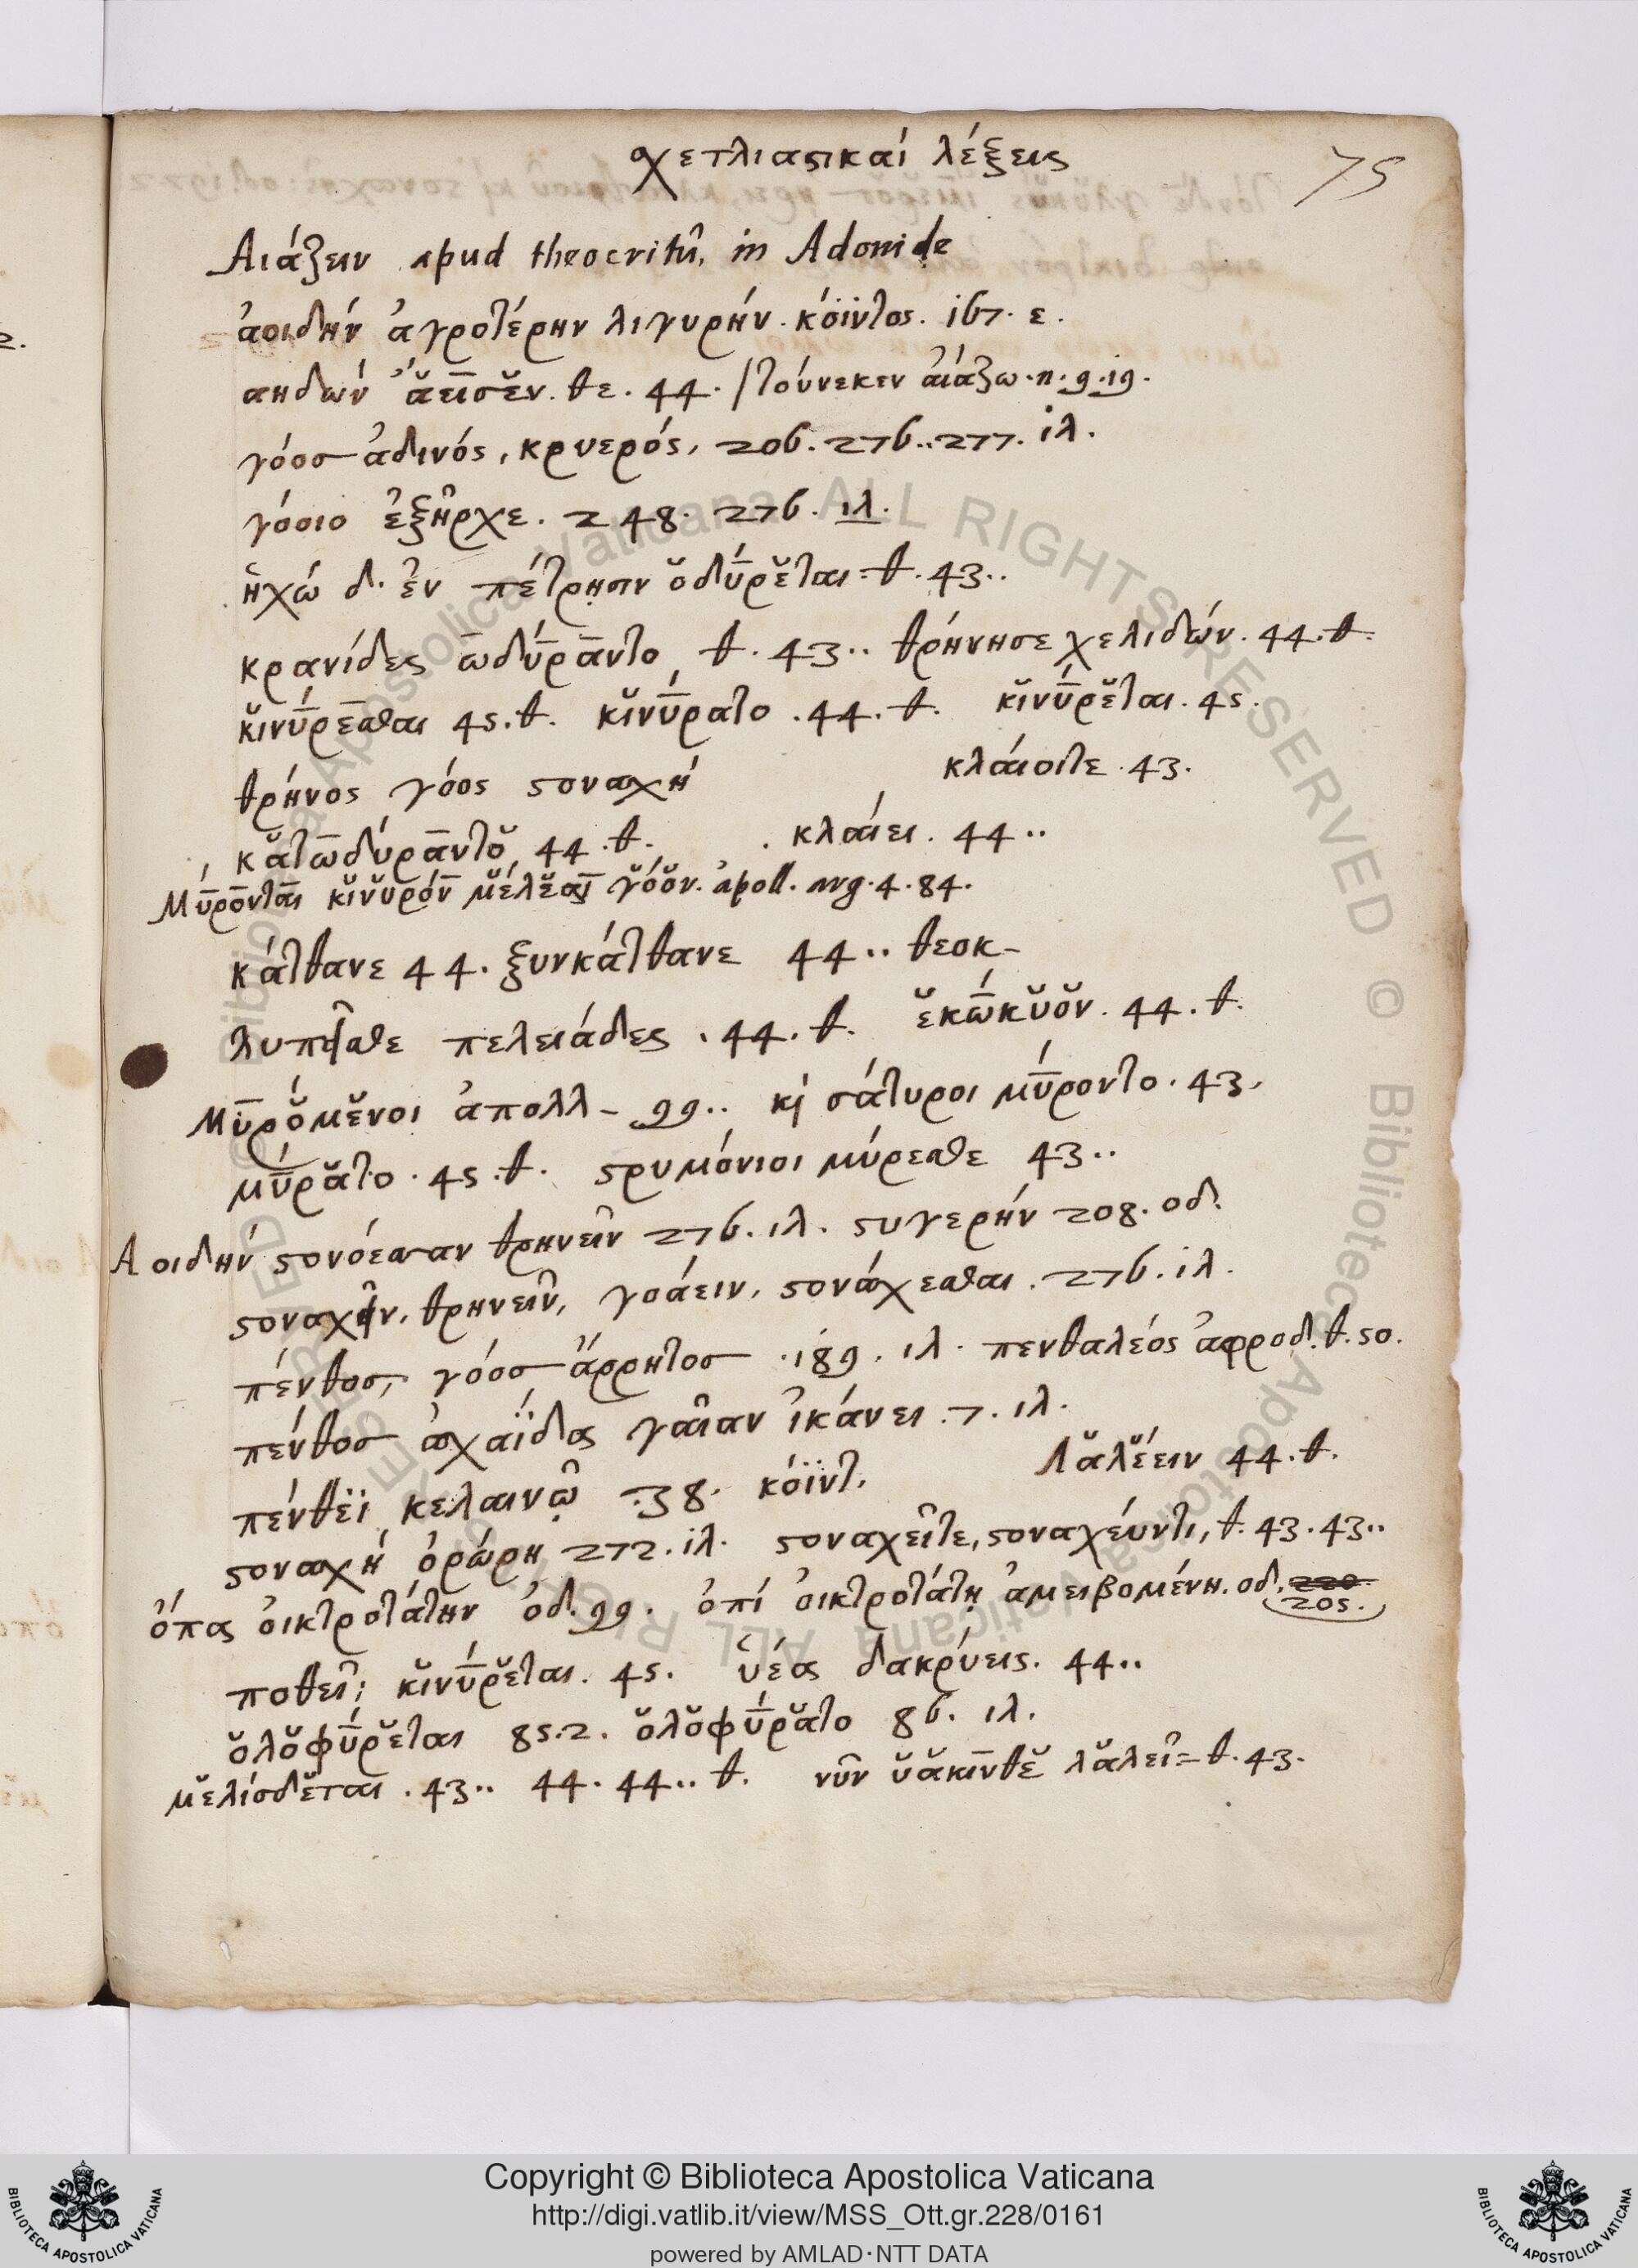 σχετλιαστικαί λέξεις
75
Αιάζειν apud theocritū, in Adonide
ἀοιδήν ἀγροτέρην λιγυρήν. κόϊντος. 167. ε.
αηδών ἄεισεν. θε. 44. / τούνεκεν αἰάζω. n. 9. 19.
γόοσ ἀδινός, κρυερός, 206. 276.. 277. ιλ.
γόοιο ἐξῆρχε. 248. 276. ιλ.
ἠχώ δ. ἐν πέτρῃσιν ὀδύρεται = θ. 43..
κρανίδες ωδύραντο θ. 43.. θρήνησε χελιδών. 44. θ.
κινύρεσθαι 45. θ. κινύρατο . 44. θ. κινύρεται. 45.
θρήνος γόος στοναχή κλάιοιτε . 43.
κατωδύραντο 44. θ. . κλάιει. 44..
Μύρονται κινυρόν μέλεαι γόον. ἀpoll. arg. 4. 84.
κάτθανε 44. ξυνκάτθανε 44.. θεοκ-
λυπῆσθε πελειάδες . 44. θ. ἐκώκυον. 44. θ.
Μυρόμενοι ἀπολλ- 99.. κ̀ σάτυροι μύροντο. 43.
μύρατο . 45. θ. στρυμόνιοι μύρεσθε 43..
Αοιδήν στονόεσσαν θρηνεῖν 276. ιλ. στυγερήν 208. οδ.
στοναχῆν, θρηνεῖν, γοάειν, στονάχεσθαι. 276. ιλ.
πένθος, γόοσ ἄρρητοσ . 189. ιλ. πενθαλέος ἀφροδ. θ. 50.
πένθοσ ἀχαΐδας γαῖαν ἱκάνει . 7. ιλ.
πένθεϊ κελαινῷ . 38. κόϊντ. Λαλέειν 44. θ.
στοναχή ὀρώρη 272. ιλ. στοναχεῖτε, στοναχέυντι, θ. 43. 43..
ὀπας ὀικτροτάτην ὀδ. 99. ὀπί ὀικτροτάτῃ ἀμειβομένη. οδ. 220. 205.
ποθεῖ; κινύρεται. 45. ὑέας δακρύεις. 44..
ὀλοφύρεται 85. 2. ὀλοφύρατο 86. ιλ.
μελίσδεται . 43.. 44. 44.. θ. νῦν ὑάκινθε λαλεῖ = θ. 43.
Copyright © Biblioteca Apostolica Vaticana
http://digi.vatlib.it/view/MSS_Ott.gr.228/0161
powered by AMLAD·NTT DATA